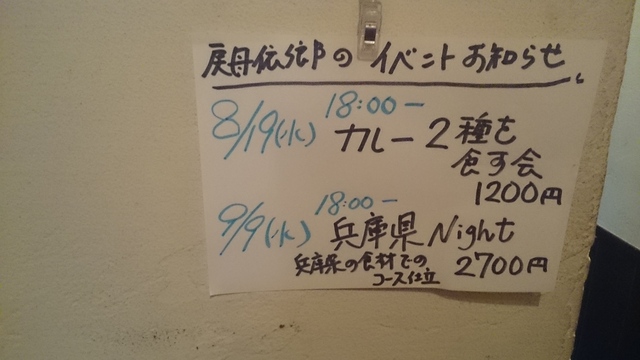 戻舟依郎のイベントお知らせ
8/19(水) 18:00ー
カレー2種を
食す会
1200円
9/9(水) 18:00ー
兵庫県Night
兵庫県の食材での
コース仕立 2700円